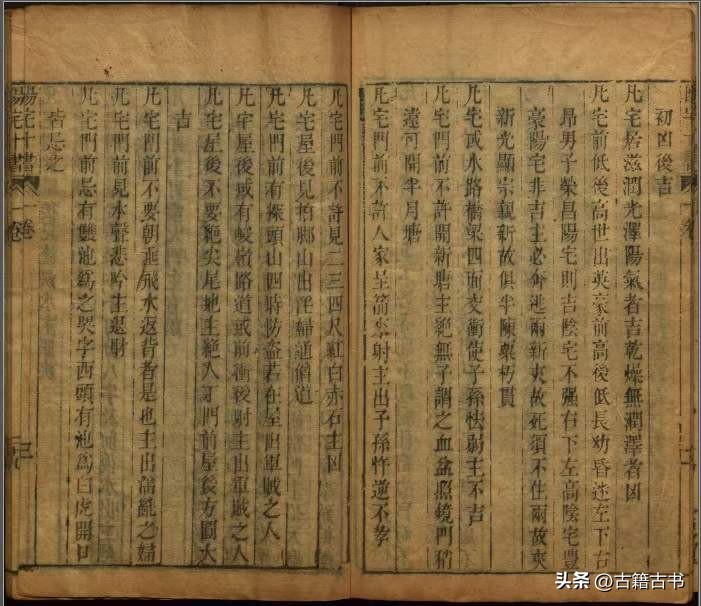 初凶後吉
凡宅居滋潤光澤陽氣者吉乾燥無潤澤者凶
凡宅前低後高世出英豪前高後低長幼昏迷左下右
昂男子榮昌陽宅則吉陰宅不强右下左高陰宅豐
豪陽宅非吉主必奔逃兩新夾故死須不住兩故夾
新光顯宗親新故俱半陳粟朽貫
凡宅或水路橋梁四面交衝使子孫怯弱主不吉
凡宅門前不許開新塘主絶無子謂之血盆照鏡門稍
遠可開半月塘
凡宅門前不許人家屋箭來射主出子孫忤逆不孝
凡宅門前不許見二三四尺紅白赤石主凶
凡宅屋後見拍脚山出淫婦通僧道
凡宅門前有探頭山四時防盗若在屋出軍賊之人
凡宅屋後或有峻嶺路道或前衝後射主出軍賊之人
凡宅屋後不要絶尖尾地主絶人丁門前屋後方圓大
吉
凡宅門前不要朝垂飛水返背者是也主出淫亂之婦
凡宅門前見水聲悲吟主退財
凡宅門前忌有雙池爲之哭字西頭有池爲白虎開口
皆忌之
陽宅十書
一卷
三
古籍古书
头条 @古籍古书